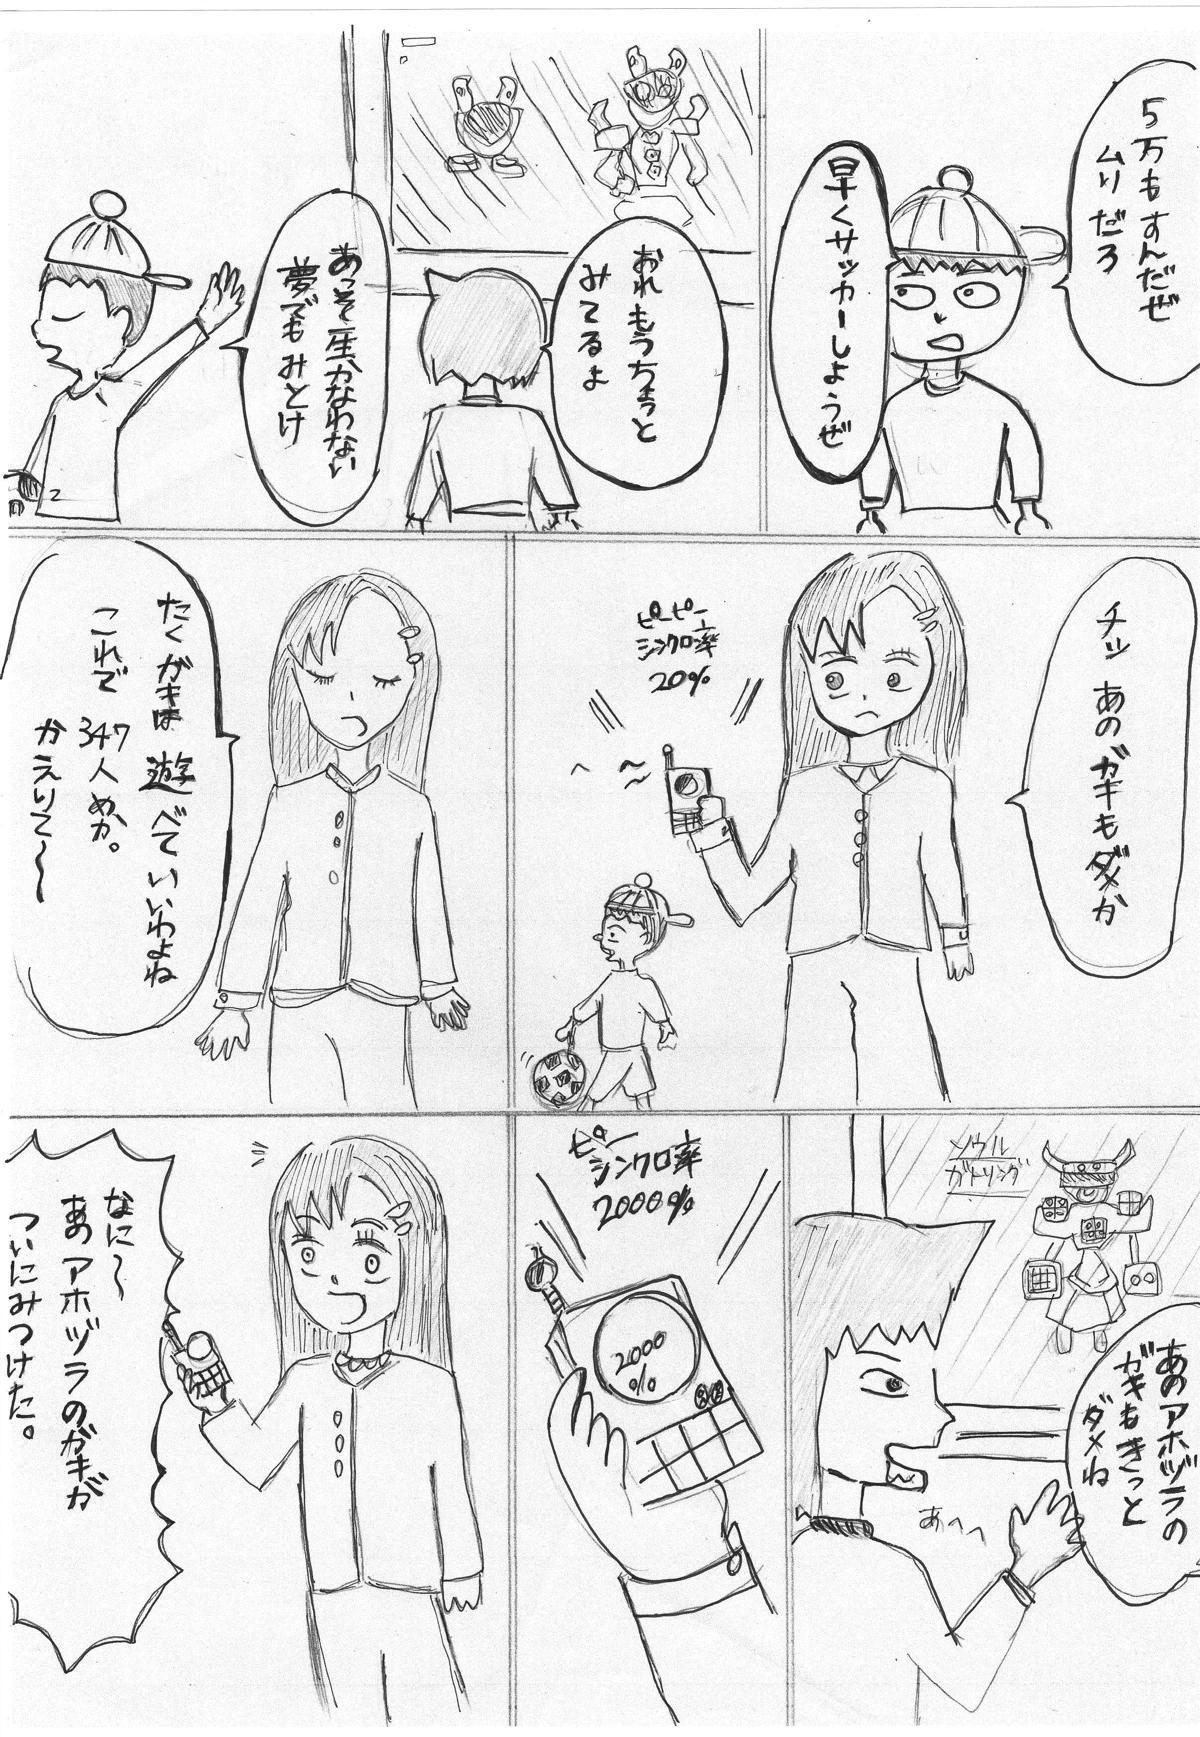 5万もすんだぜ
ムリだろ
早くサッカーしようぜ
おれもうちょっと
みてるよ
あっそ一生かなわない
夢でもみとけ
2
チッ あのガキもダメか
ピーピー
シンクロ率
20%
たくガキは遊べていいわよね
これで347人めか。
かえりて〜〜
ソウル
ガトリング
あのアホヅラの
ガキもきっと
ダメね
あへへ
ピー
シンクロ率
2000%
2000
%
なに〜〜
あのアホヅラのガキが
ついにみつけた。